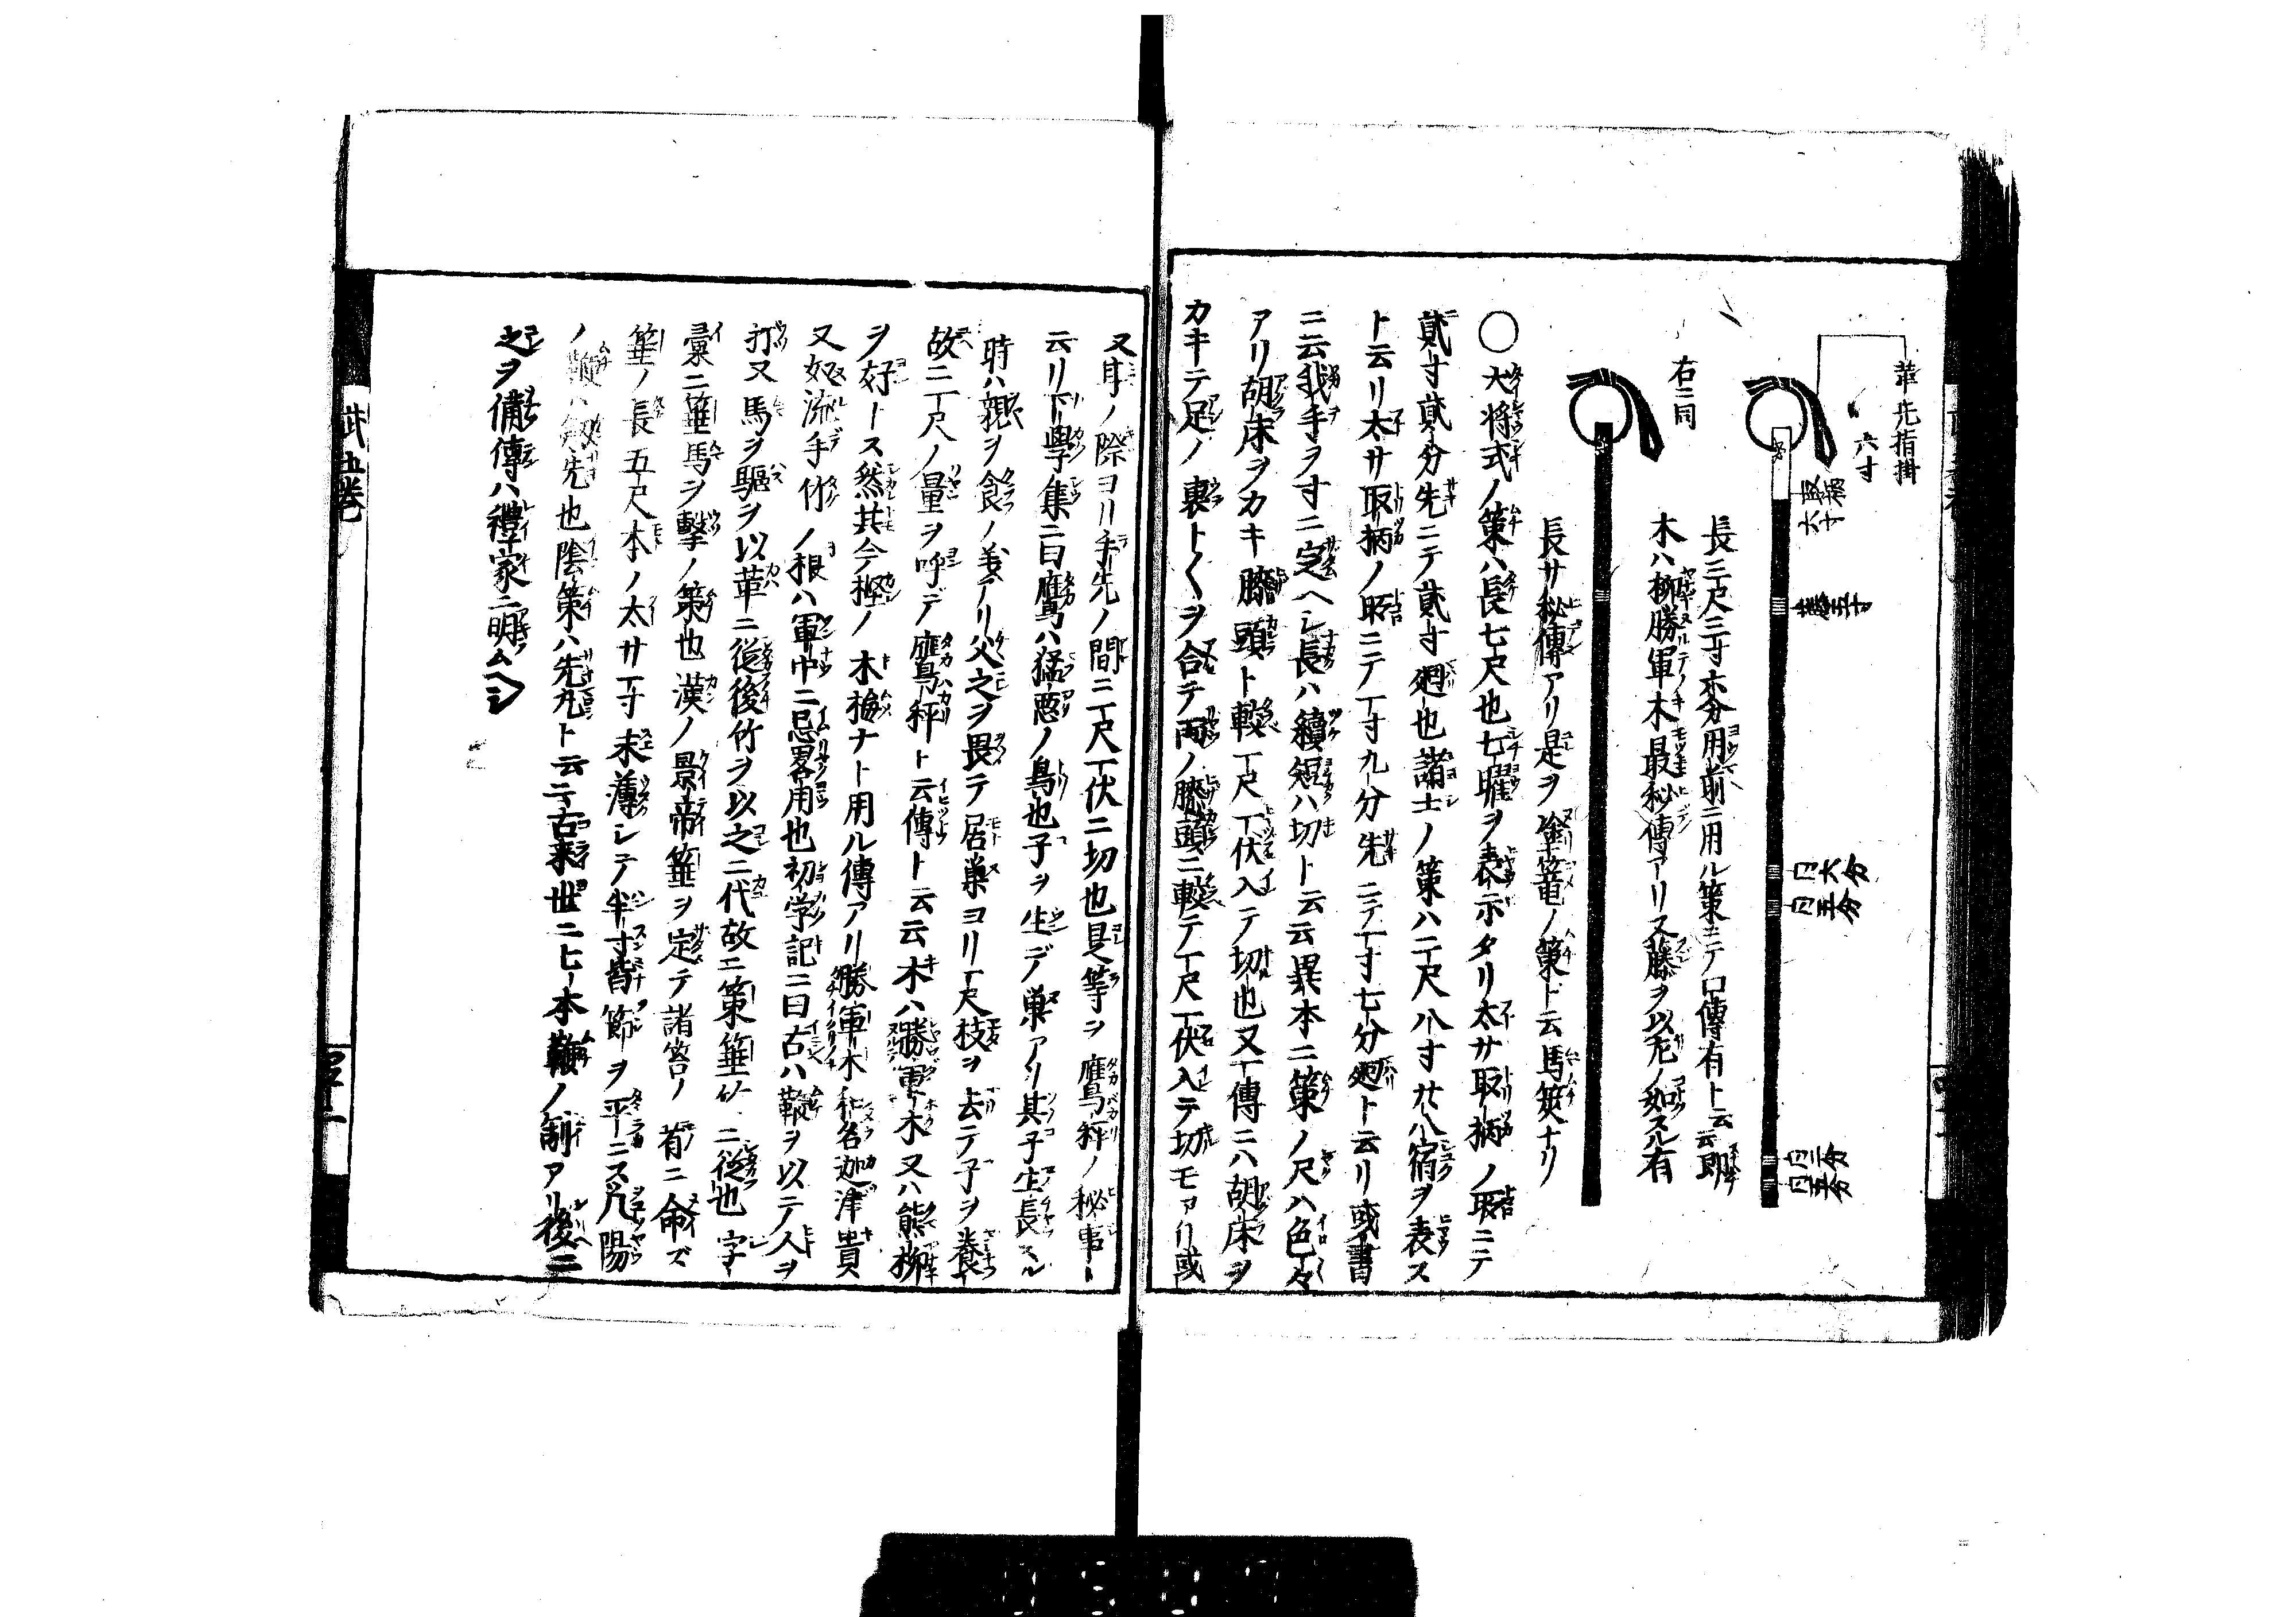 革先指掛
六寸
取柄
六寸
藤五寸
同六分
同五分
同三分
同五分
長三尺三寸六分用前ニ用ル策ニテ口傳有ト云云即
木ハ柳勝軍木最秘傳アリ又藤ヲ以厄ノ如スル有
右ニ同
長サ秘傳アリ是ヲ塗篭ノ策ト云馬策ナリ
○大将式ノ策ハ長七尺也七曜ヲ表示タリ太サ取柄ノ䟽ニテ
貮寸貮分先ニテ貮寸廻也諸士ノ策ハ二尺八寸廿八宿ヲ表ス
ト云リ太サ取柄ノ䟽ニテ一寸九分先ニテ一寸七分廻ト云リ或書
ニ云我手ヲ寸ニ定ヘシ長ハ續短ハ切ト云云異本ニ策ノ尺ハ色々
アリ胡床ヲカキ膝頭ト較一尺一伏入テ切也又一傳ニハ胡床ヲ
カキテ足ノ裏ト〱ヲ合テ両ノ膝頭ニ較テ一尺一伏入テ切モアリ或
又耳ノ際ヨリ手先ノ間ニ一尺一伏ニ切也是等ヲ鷹秤ノ秘事ト
云リ下學集ニ曰鷹ハ猛悪ノ鳥也子ヲ生デノ巣アリ其子生長スル
時ハ親ヲ食ノ義アリ父之ヲ畏テ居巣ヨリ一尺枝ヲ去テ子ヲ養
故ニ一尺ノ量ヲ呼デ鷹秤ト云傳ト云云木ハ勝軍木又ハ熊柳
ヲ好トス然共今樫ノ木梅ナト用ル傳アリ勝軍木和名迦津貴
又奴流手竹ノ根ハ軍中ニ忌畧用也初学記ニ曰古ハ鞭ヲ以テ人ヲ
打又馬ヲ驅ヲ以革ニ従後竹ヲ以之ニ代故ニ策箠竹ニ従也字
彙ニ箠馬ヲ擊ノ策也漢ノ景帝箠ヲ定テ諸笞ノ者ニ命ズ
箠ノ長五尺本ノ太サ一寸末薄シテ半寸皆節ヲ平ニス凡陽
ノ鞭ハ剱先也陰策ハ先丸ト云云古来世ニ七本鞭ノ制アリ後ニ
之ヲ備傳ハ禮家ニ明ムヘシ
武五巻